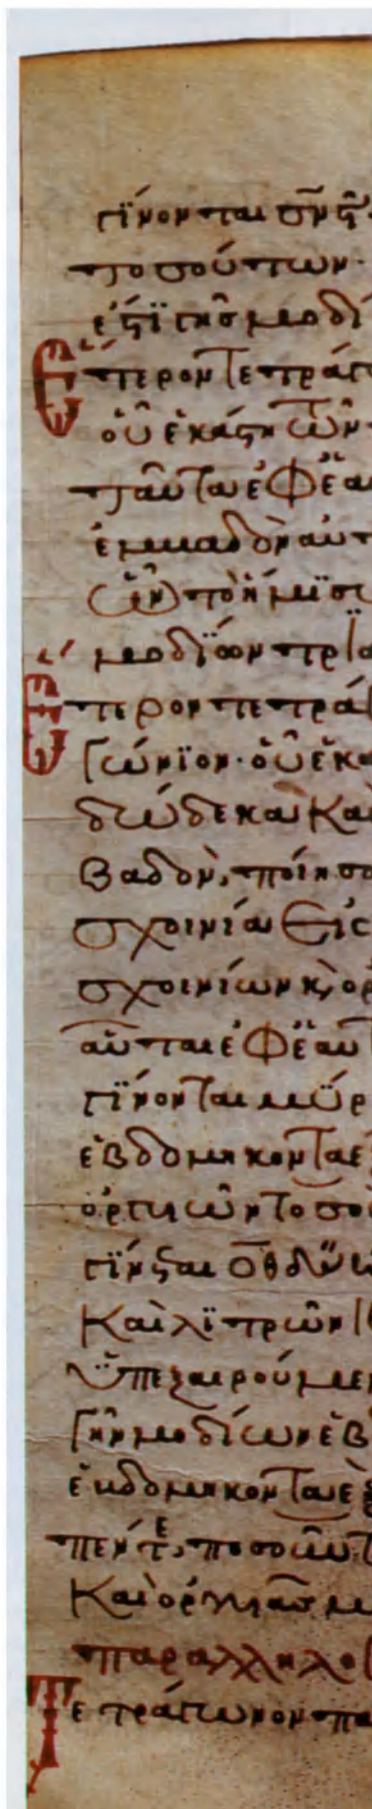 γίνονται σνϛ
τοσούτων·
ἐστὶ γῆς μοδί
Ἕτερον τετράγ
οὗ ἑκάστη τῶν
ταῦτα ἐφ' ἑαυ
ἐμβαδὸν αὐτ
ὧν τὸ ἥμισυ
μοδίων τρια
Ἕτερον τετρά
γώνιον· οὗ ἑκα
δώδεκα καὶ
βαδὸν, ποίησο
σχοινία εἰς
σχοινίων κ, ὀρ
αὗται ἐφ' ἑαυτ
γίνονται μύρ
ἑβδομήκοντα ε
ὀργιῶν τοσού
γίνεται
καὶ λιτρῶν
ὑπεξαιρούμεν
γῆν μοδίων ἑβ
ἑβδομήκοντα ἐξ
πέντε, ποσοῦντ
καὶ ὀργυιὰς μ
παραλληλο
Τετράγωνον πα